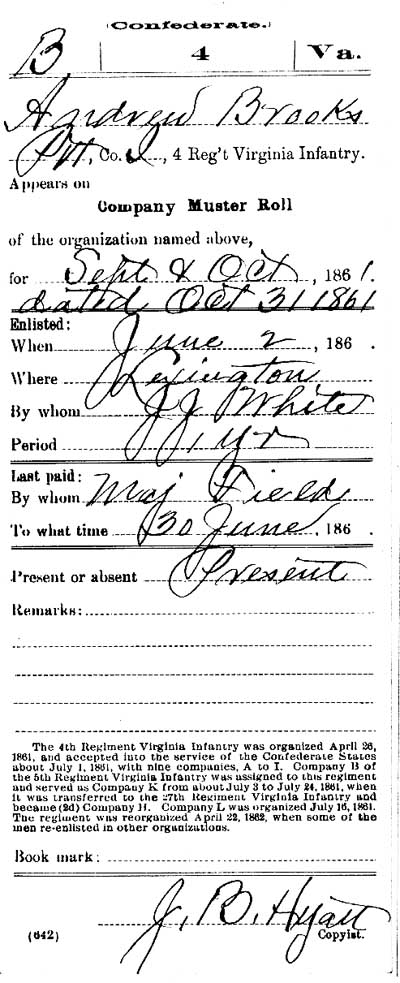 (Confederate.)
B | 4 | Va.
Andrew Brooks
Pvt, Co. I, 4 Reg't Virginia Infantry.
Appears on
Company Muster Roll
of the organization named above,
for Sept & Oct, 1861.
dated Oct 31 1861
Enlisted:
When June 2, 186 .
Where Lexington
By whom J J White
Period 1 yr
Last paid:
By whom Maj Field
To what time 30 June, 186 .
Present or absent Present
Remarks:
The 4th Regiment Virginia Infantry was organized April 26,
1861, and accepted into the service of the Confederate States
about July 1, 1861, with nine companies, A to I. Company B of
the 5th Regiment Virginia Infantry was assigned to this regiment
and served as Company K from about July 3 to July 24, 1861, when
it was transferred to the 27th Regiment Virginia Infantry and
became (2d) Company H. Company L was organized July 16, 1861.
The regiment was reorganized April 22, 1862, when some of the
men re-enlisted in other organizations.
Book mark:
J. B. Hyatt
(642) Copyist.